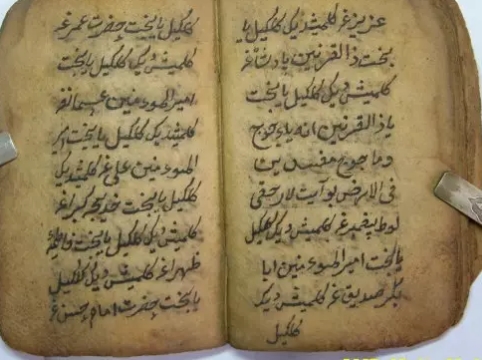 عزیزغه کلمیش دیک کلکیل یا
بخت ذالقرنین پادشاغه
کلمیش دیک کلکیل یا بخت
یاذالقرنین انه یاجوج
وماجوج مفسدین
فی الارض بو آیت لار حقی
لوط پیغمبرغه کلمیش دیک کلکیل
یا بخت امیر المومنین ابا
بکر صدیق غه کلمیش دیک
کلکیل
کلکیل یا بخت حضرت عمرغه
کلمیش دیک کلکیل یا بخت
امیر المومنین عثمانغه
کلمیش دیک کلکیل یا بخت امیر
المومنین علی غه کلمیش دیک
کلکیل یا بخت خدیجه کبراغه
کلمیش دیک کلکیل یا بخت فاطمه
ظهراغه کلمیش دیک کلکیل
یا بخت حضرت امام حسن غه